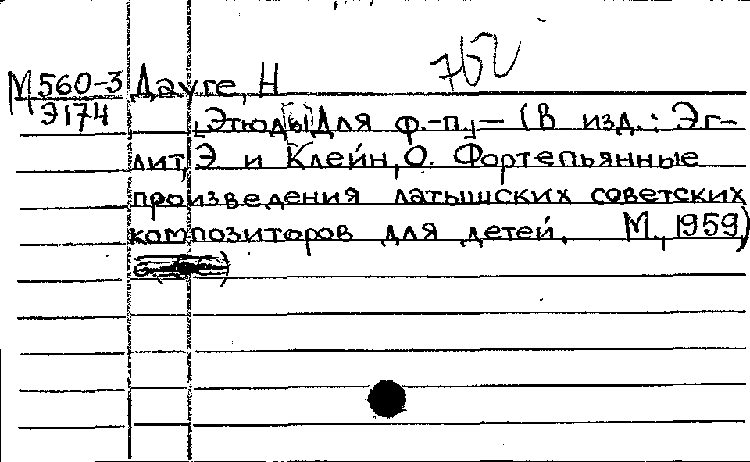 762
М560-3 Дауге, Н
Э174
[Этюды] Для ф.-п.] — (В изд.: Эг-
лит, Э и Клейн, О. Фортепьянные
произведения латышских советских
композиторов для детей. М., 1959)